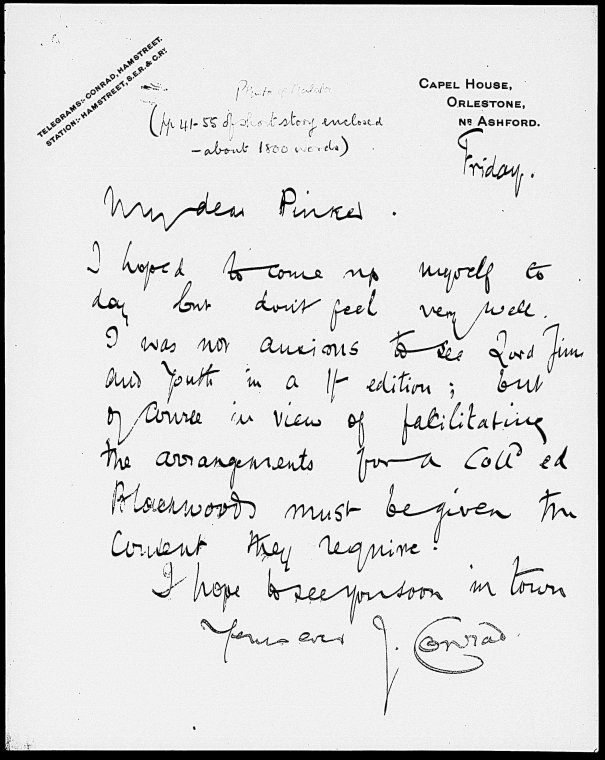 TELEGRAMS:- CONRAD, HAMSTREET.
STATION:- HAMSTREET, S.E.R. & C.RY.
CAPEL HOUSE,
ORLESTONE,
NR ASHFORD.
(pp 41-55 of short story enclosed
- about 1800 words)
Friday.
My dear Pinker.
I hoped to come up myself to
day but don't feel very well.
I was not anxious to see Lord Jim
and Youth in a 1/ edition; but
of course in view of facilitating
the arrangements for a Coll^d ed
Blackwoods must be given the
consent they require.
I hope to see you soon in town
Yours ever J. Conrad.